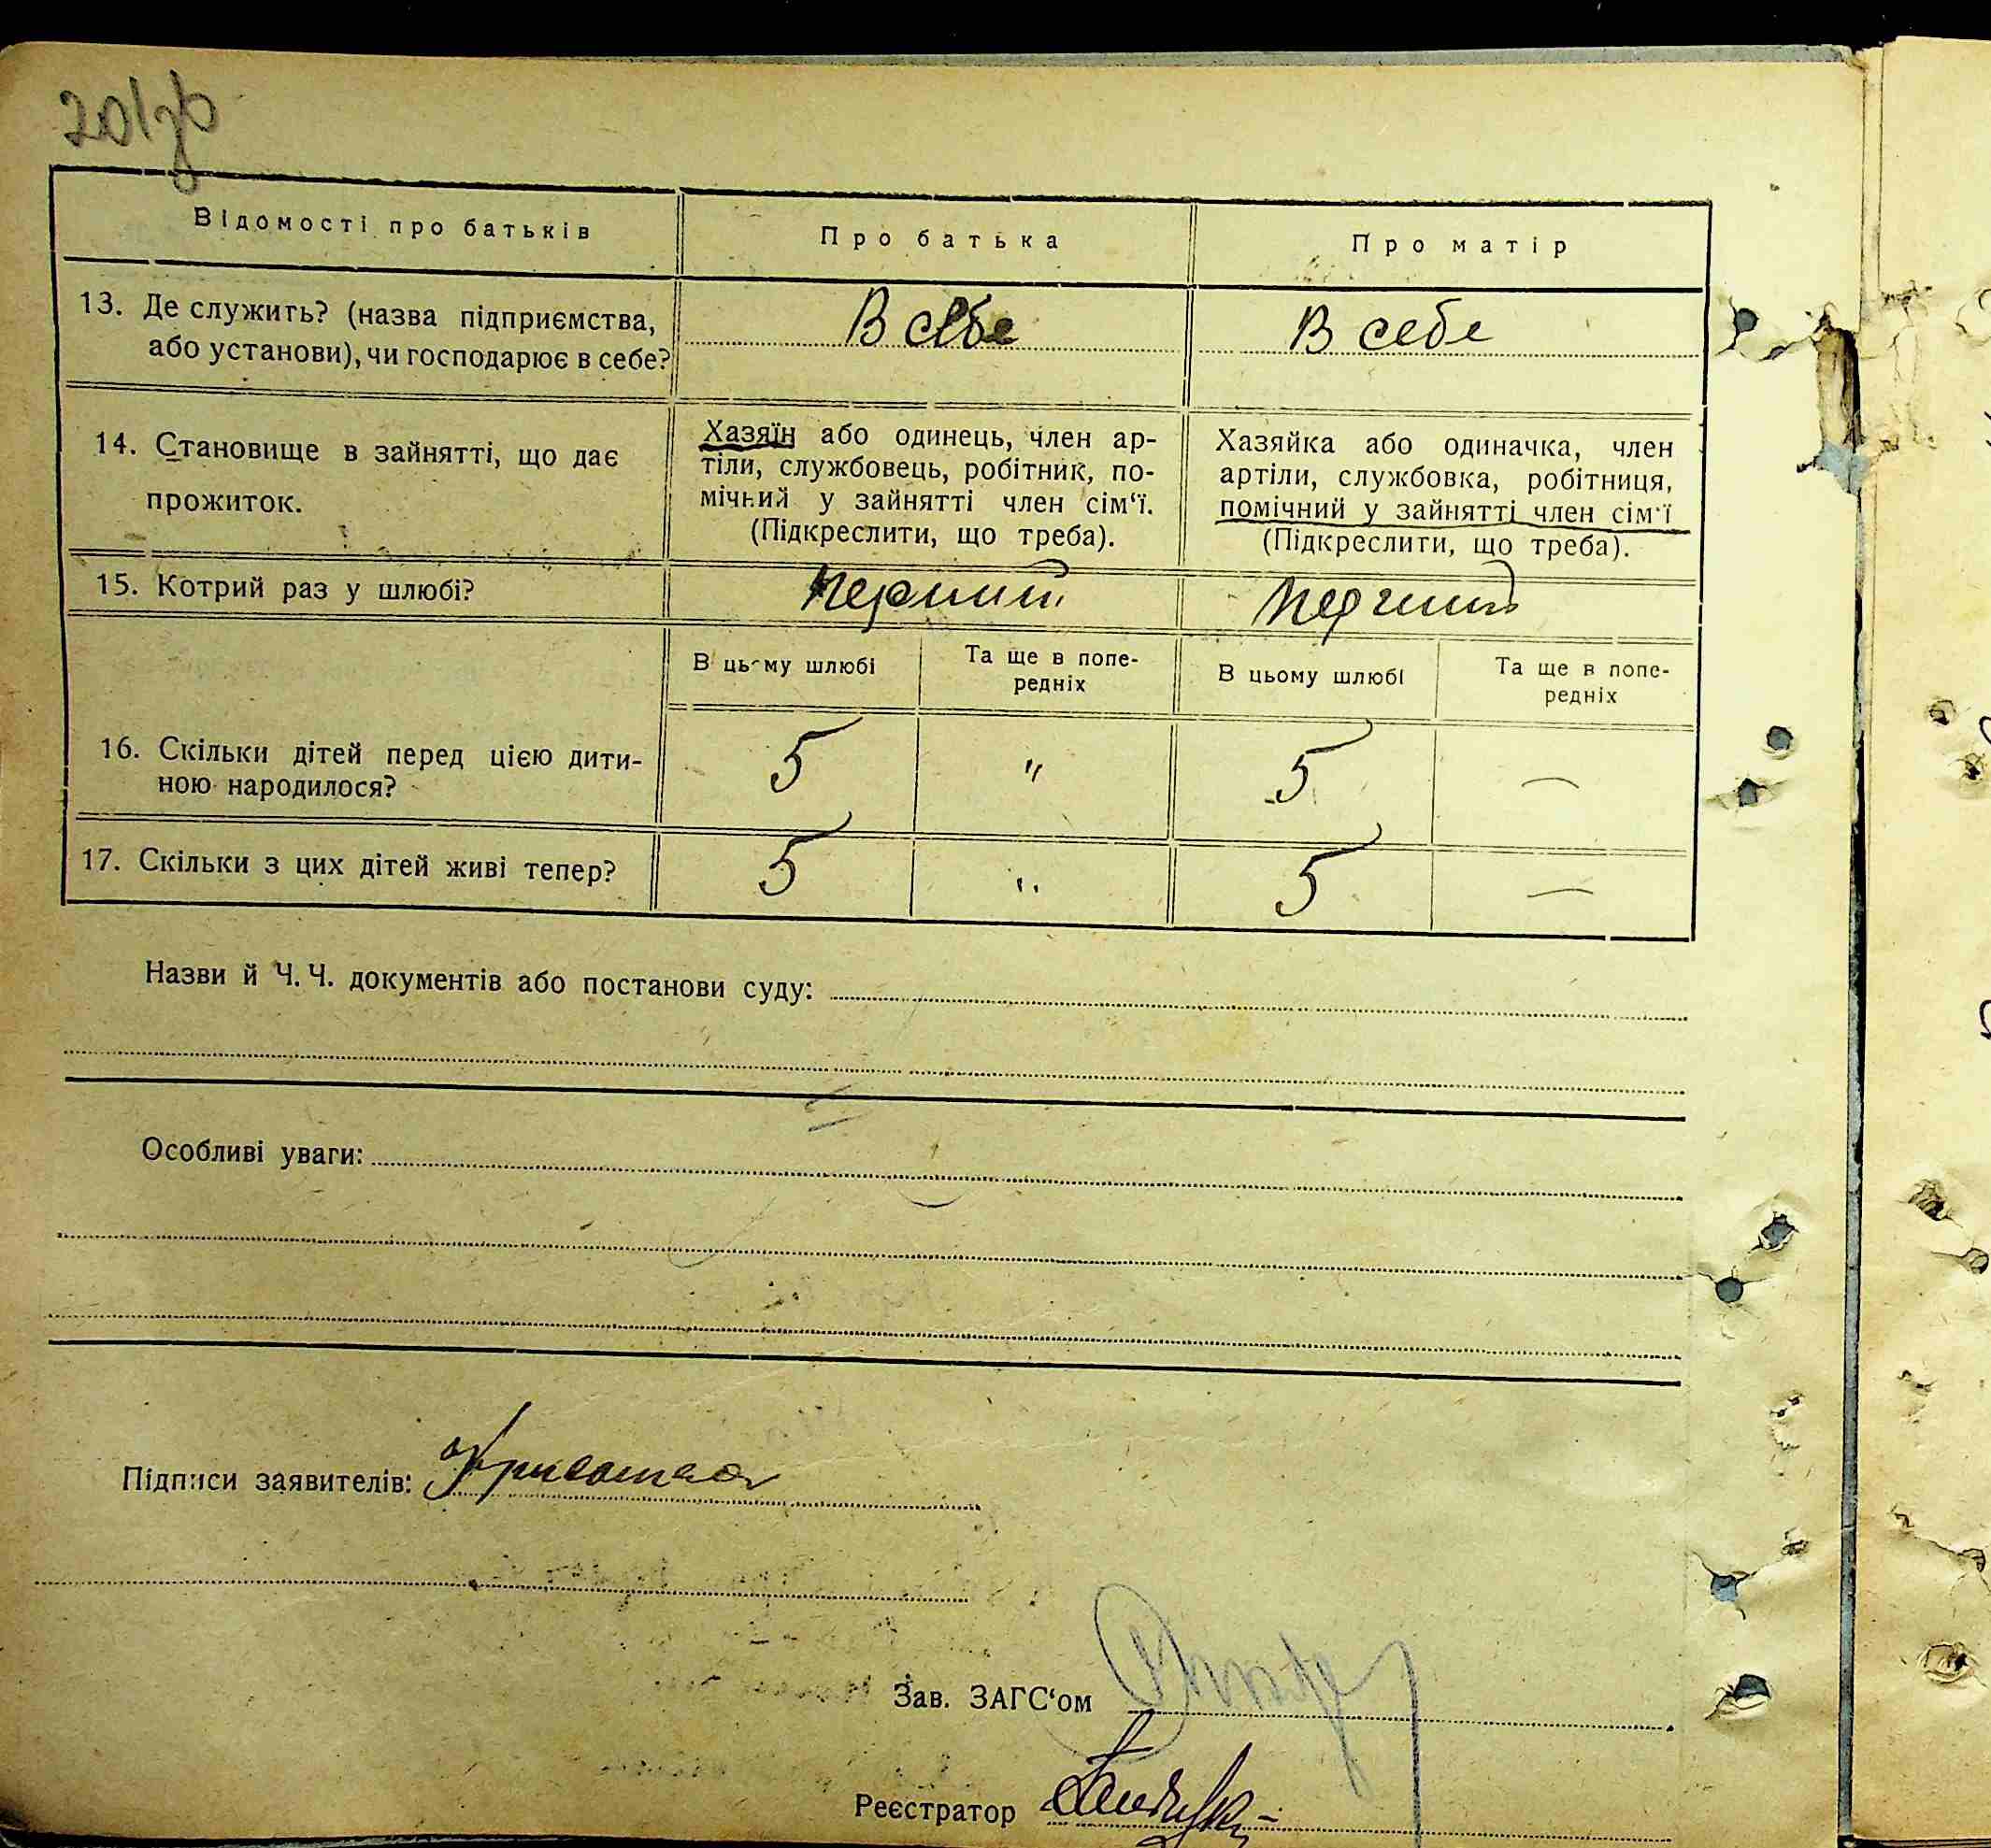 201зв
Відомості про батьків
Про батька
Про матір
13. Де служить? (назва підприємства,
або установи), чи господарює в себе?
В себе
В себе
14. Становище в зайнятті, що дає
прожиток.
Хазяїн або одинець, член ар-
тіли, службовець, робітник, по-
мічний у зайнятті член сім‘ї.
(Підкреслити, що треба).
Хазяйка або одиначка, член
артіли, службовка, робітниця,
помічний у зайнятті член сім‘ї
(Підкреслити, що треба).
15. Котрий раз у шлюбі?
перший
перший
В цьму шлюбі
Та ще в попе-
редніх
В цьому шлюбі
Та ще в попе-
редніх
16. Скільки дітей перед цією дити-
ною народилося?
5
"
5
—
17. Скільки з цих дітей живі тепер?
5
"
5
—
Назви й Ч. Ч. документів або постанови суду:
Особливі уваги:
Підписи заявителів:
Зав. ЗАГС‘ом
Реєстратор